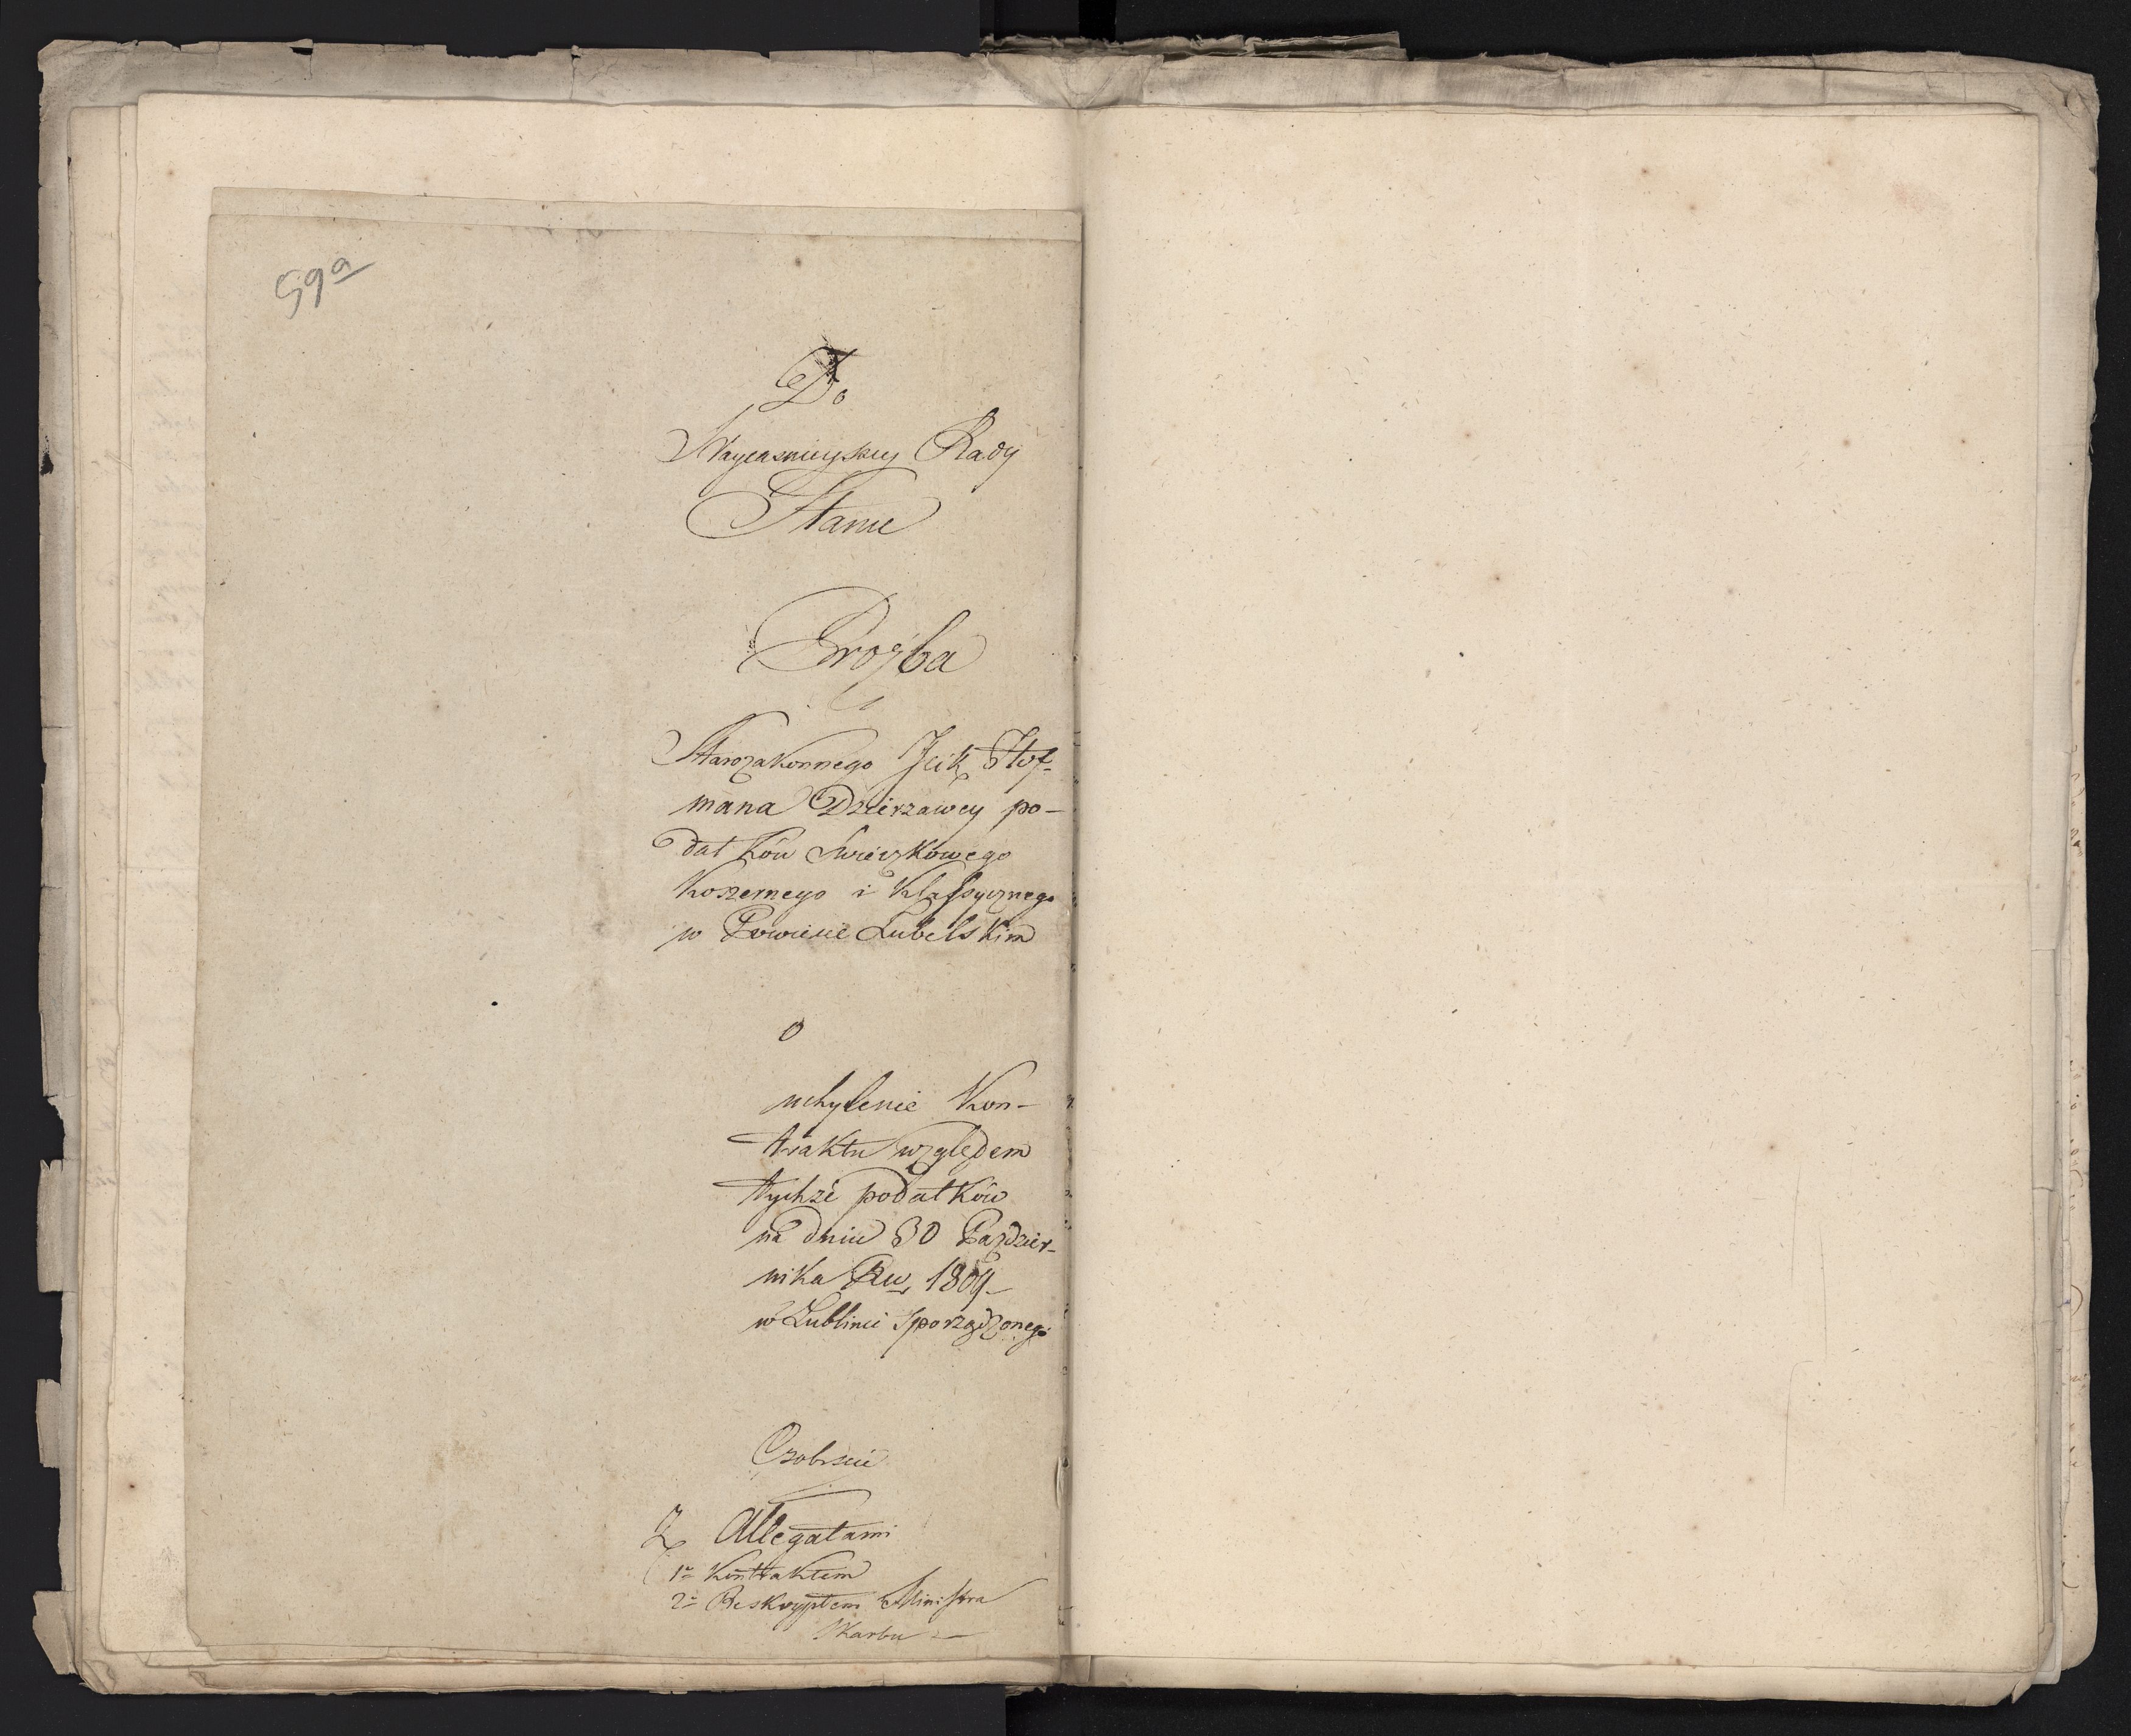 59a
Do
Nayiasnieyszey Rady
Stanu
Proźba
Starozakonnego Jcik Hof-
mana Dzierzawcy po-
datków Swieczkowego
Koszernego i Klassycznego
w Powiecie Lubelskim
o
uchylenie Kon-
traktu względem
tychże podatków
na dniu 30 Paździer-
nika Rku 1809
w Lublinie sporządzonego
Osobiscie
Z Allegatami
1o Kontraktem
2o Reskryptem Ministra
Skarbu